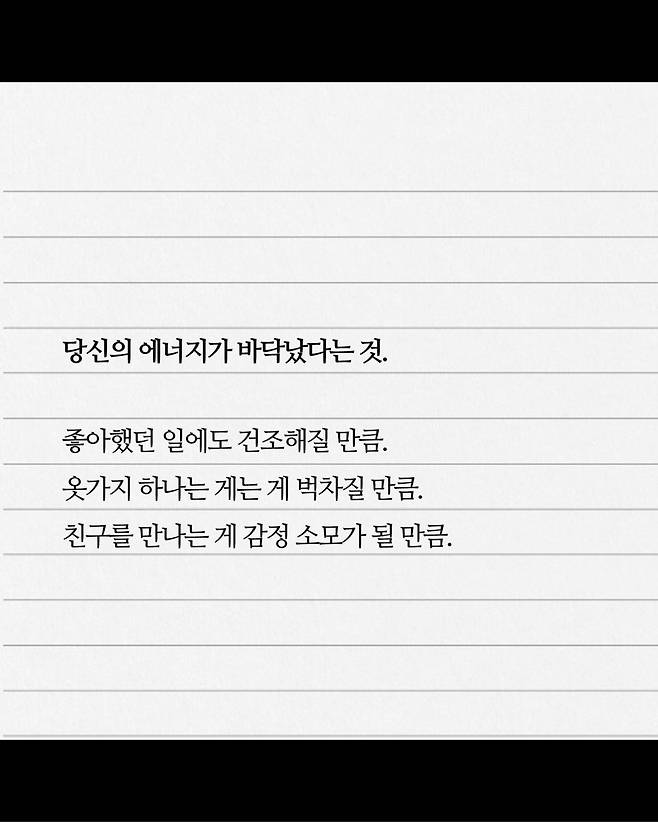 당신의 에너지가 바닥났다는 것.
좋아했던 일에도 건조해질 만큼.
옷가지 하나는 게는 게 벅차질 만큼.
친구를 만나는 게 감정 소모가 될 만큼.